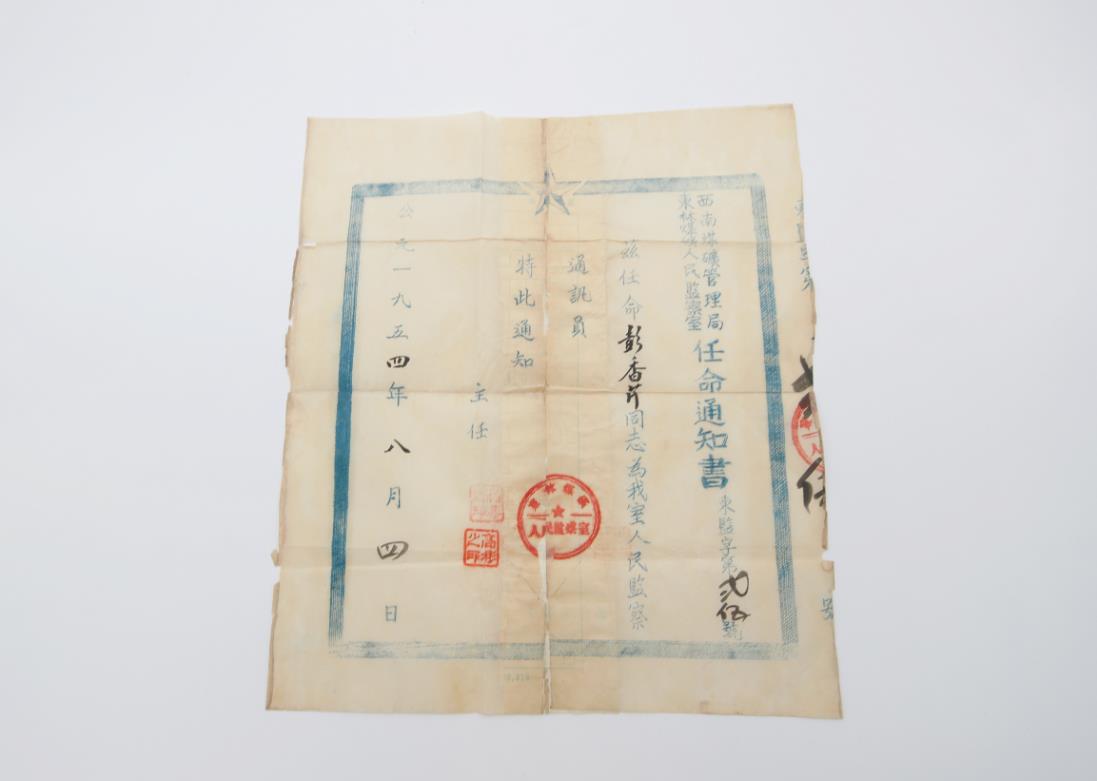 西南煤礦管理局
東林煤礦人民監察室
任命通知書
東監字第弍伍號
茲任命彭香芹同志為我室人民監察
通訊員
特此通知
主任
東林煤礦
人民監察室
公元一九五四年八月四日